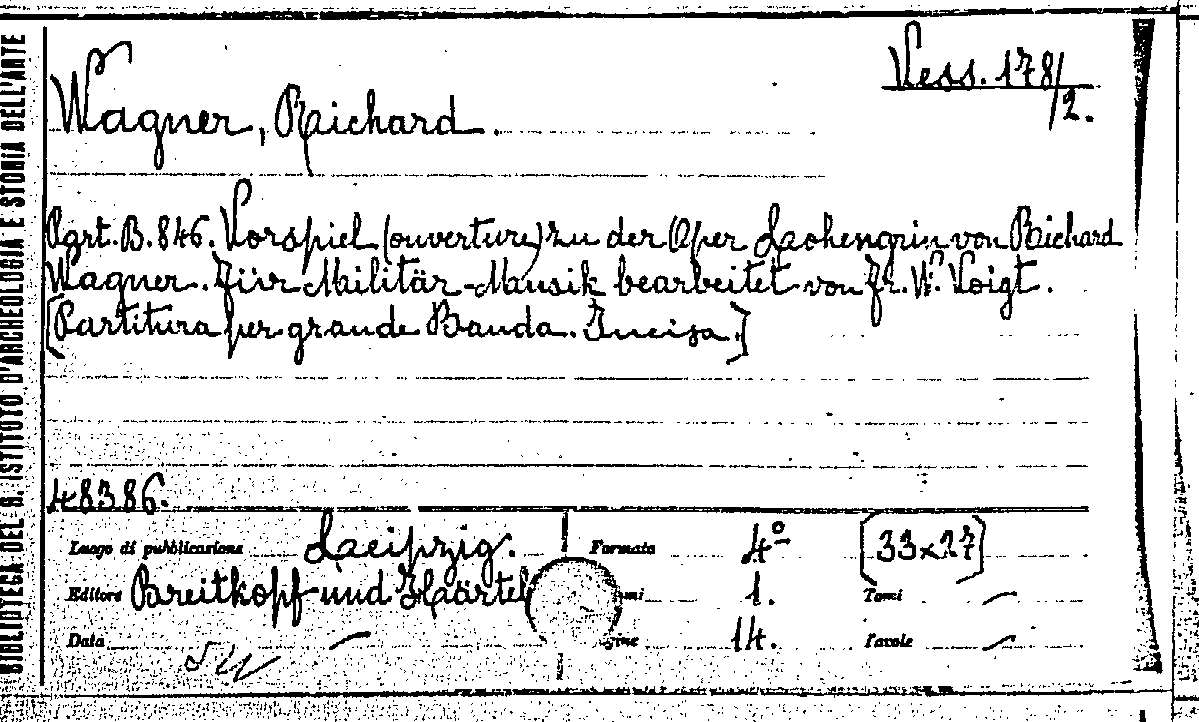 BIBLIOTECA DEL R. ISTITUTO D'ARCHEOLOGIA E STORIA DELL'ARTE
Vess. 178/2.
Wagner, Richard.
Part. B. 846. Vorspiel (ouverture) zu der Oper Laohengrin von Richard
Wagner. Für Militär-Musik bearbeitet von Fr. W. Voigt.
[Partitura per grande Banda. Incisa.]
48386.
Luogo di pubblicazione Laeipzig. Formato 4º [33x27]
Editore Breitkopf und Haärtel 1. Tomi –
Data – 14. Tavole –